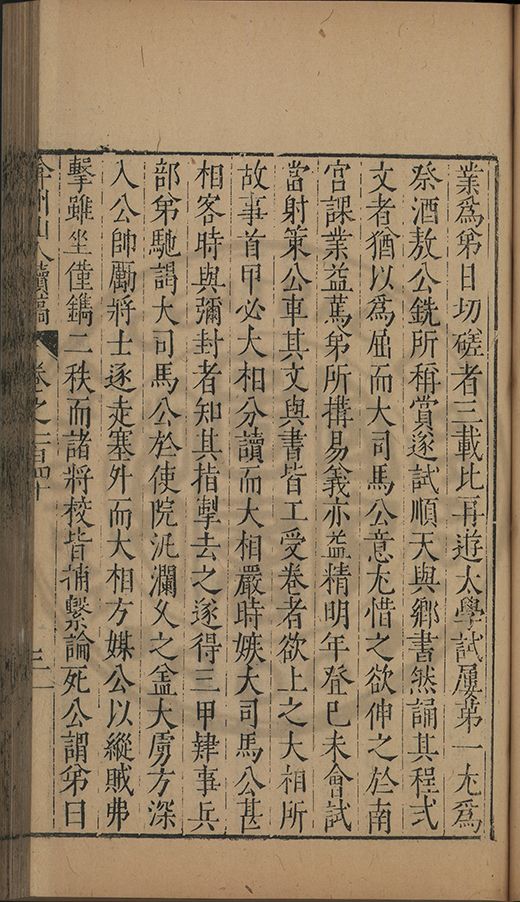 業爲弟日切磋者三載比再遊太學試屢第一尤爲
祭酒敖公銑所稱賞遂試順天與鄉書然誦其程式
文者猶以爲屈而大司馬公意尤惜之欲伸之於南
宮課業益篤弟所搆易義亦益精明年登己未會試
當射策公車其文與書皆工受卷者欲上之大相所
故事首甲必大相分讀而大相嚴時嫉大司馬公甚
相客時與彌封者知其指掣去之遂得三甲肄事兵
部弟馳謁大司馬公於使院汍瀾久之盖大虜方深
入公帥勵將士逐走塞外而大相方媒公以縱賊弗
擊雖坐僅鐫二秩而諸將校皆捕繫論死公謂弟曰
弇州山人續稿 卷之一百四十 三